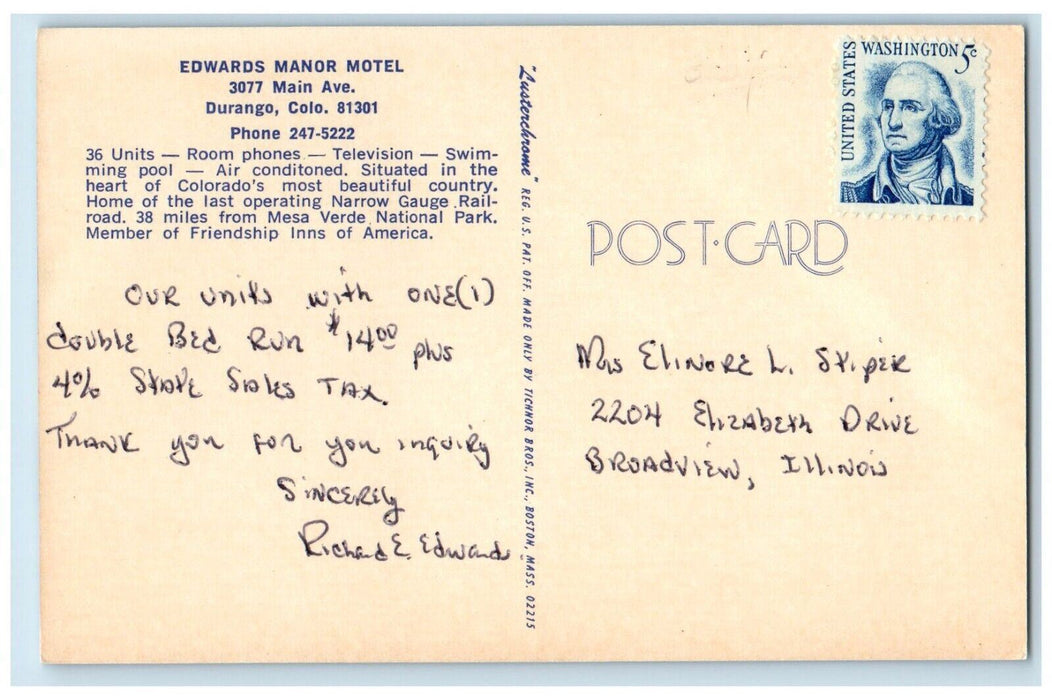 EDWARDS MANOR MOTEL
3077 Main Ave.
Durango, Colo. 81301
Phone 247-5222
36 Units — Room phones — Television — Swim-
ming pool — Air conditoned. Situated in the
heart of Colorado's most beautiful country.
Home of the last operating Narrow Gauge Rail-
road. 38 miles from Mesa Verde National Park.
Member of Friendship Inns of America.
Our units with one(1)
double Bed Run $14.00 plus
4% State Sales Tax.
Thank you for you inquiry
Sincerely
Richard E. Edwards
"Lusterchrome" REG. U.S. PAT. OFF. MADE ONLY BY TICHNOR BROS., INC., BOSTON, MASS. 02215
UNITED STATES
WASHINGTON 5¢
POST·CARD
Mrs Elinore L. Stiper
2204 Elizabeth Drive
Broadview, Illinois